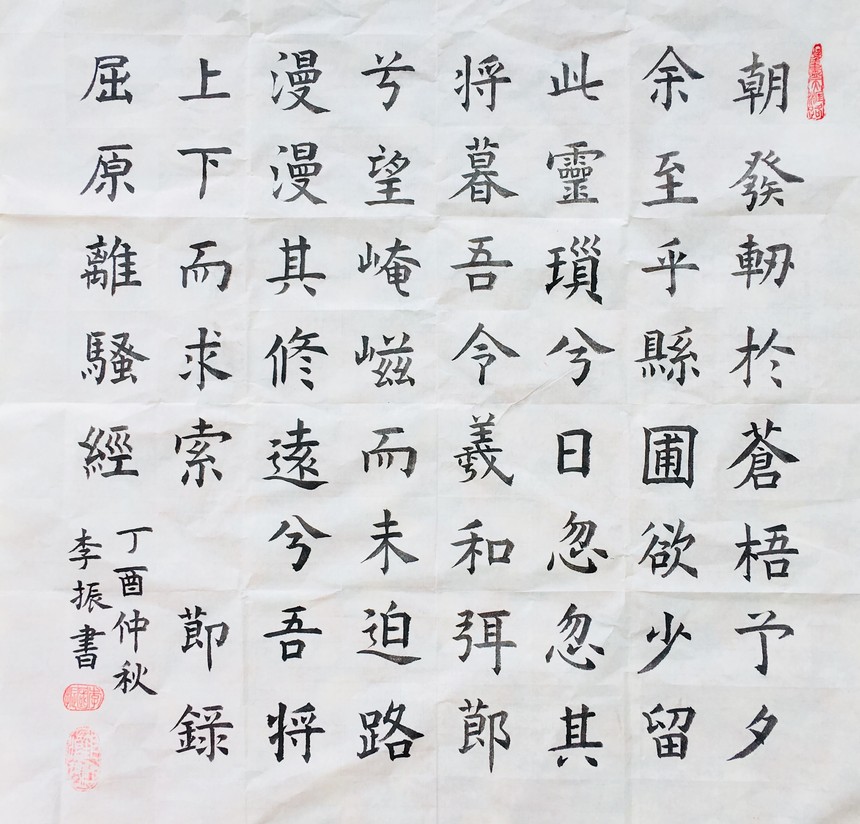 朝發軔於蒼梧兮夕
余至乎縣圃欲少留
此靈瑣兮日忽忽其
将暮吾令羲和弭節
兮望崦嵫而未迫路
漫漫其修遠兮吾将
上下而求索 節錄
屈原離騷經
丁酉仲秋
李振書